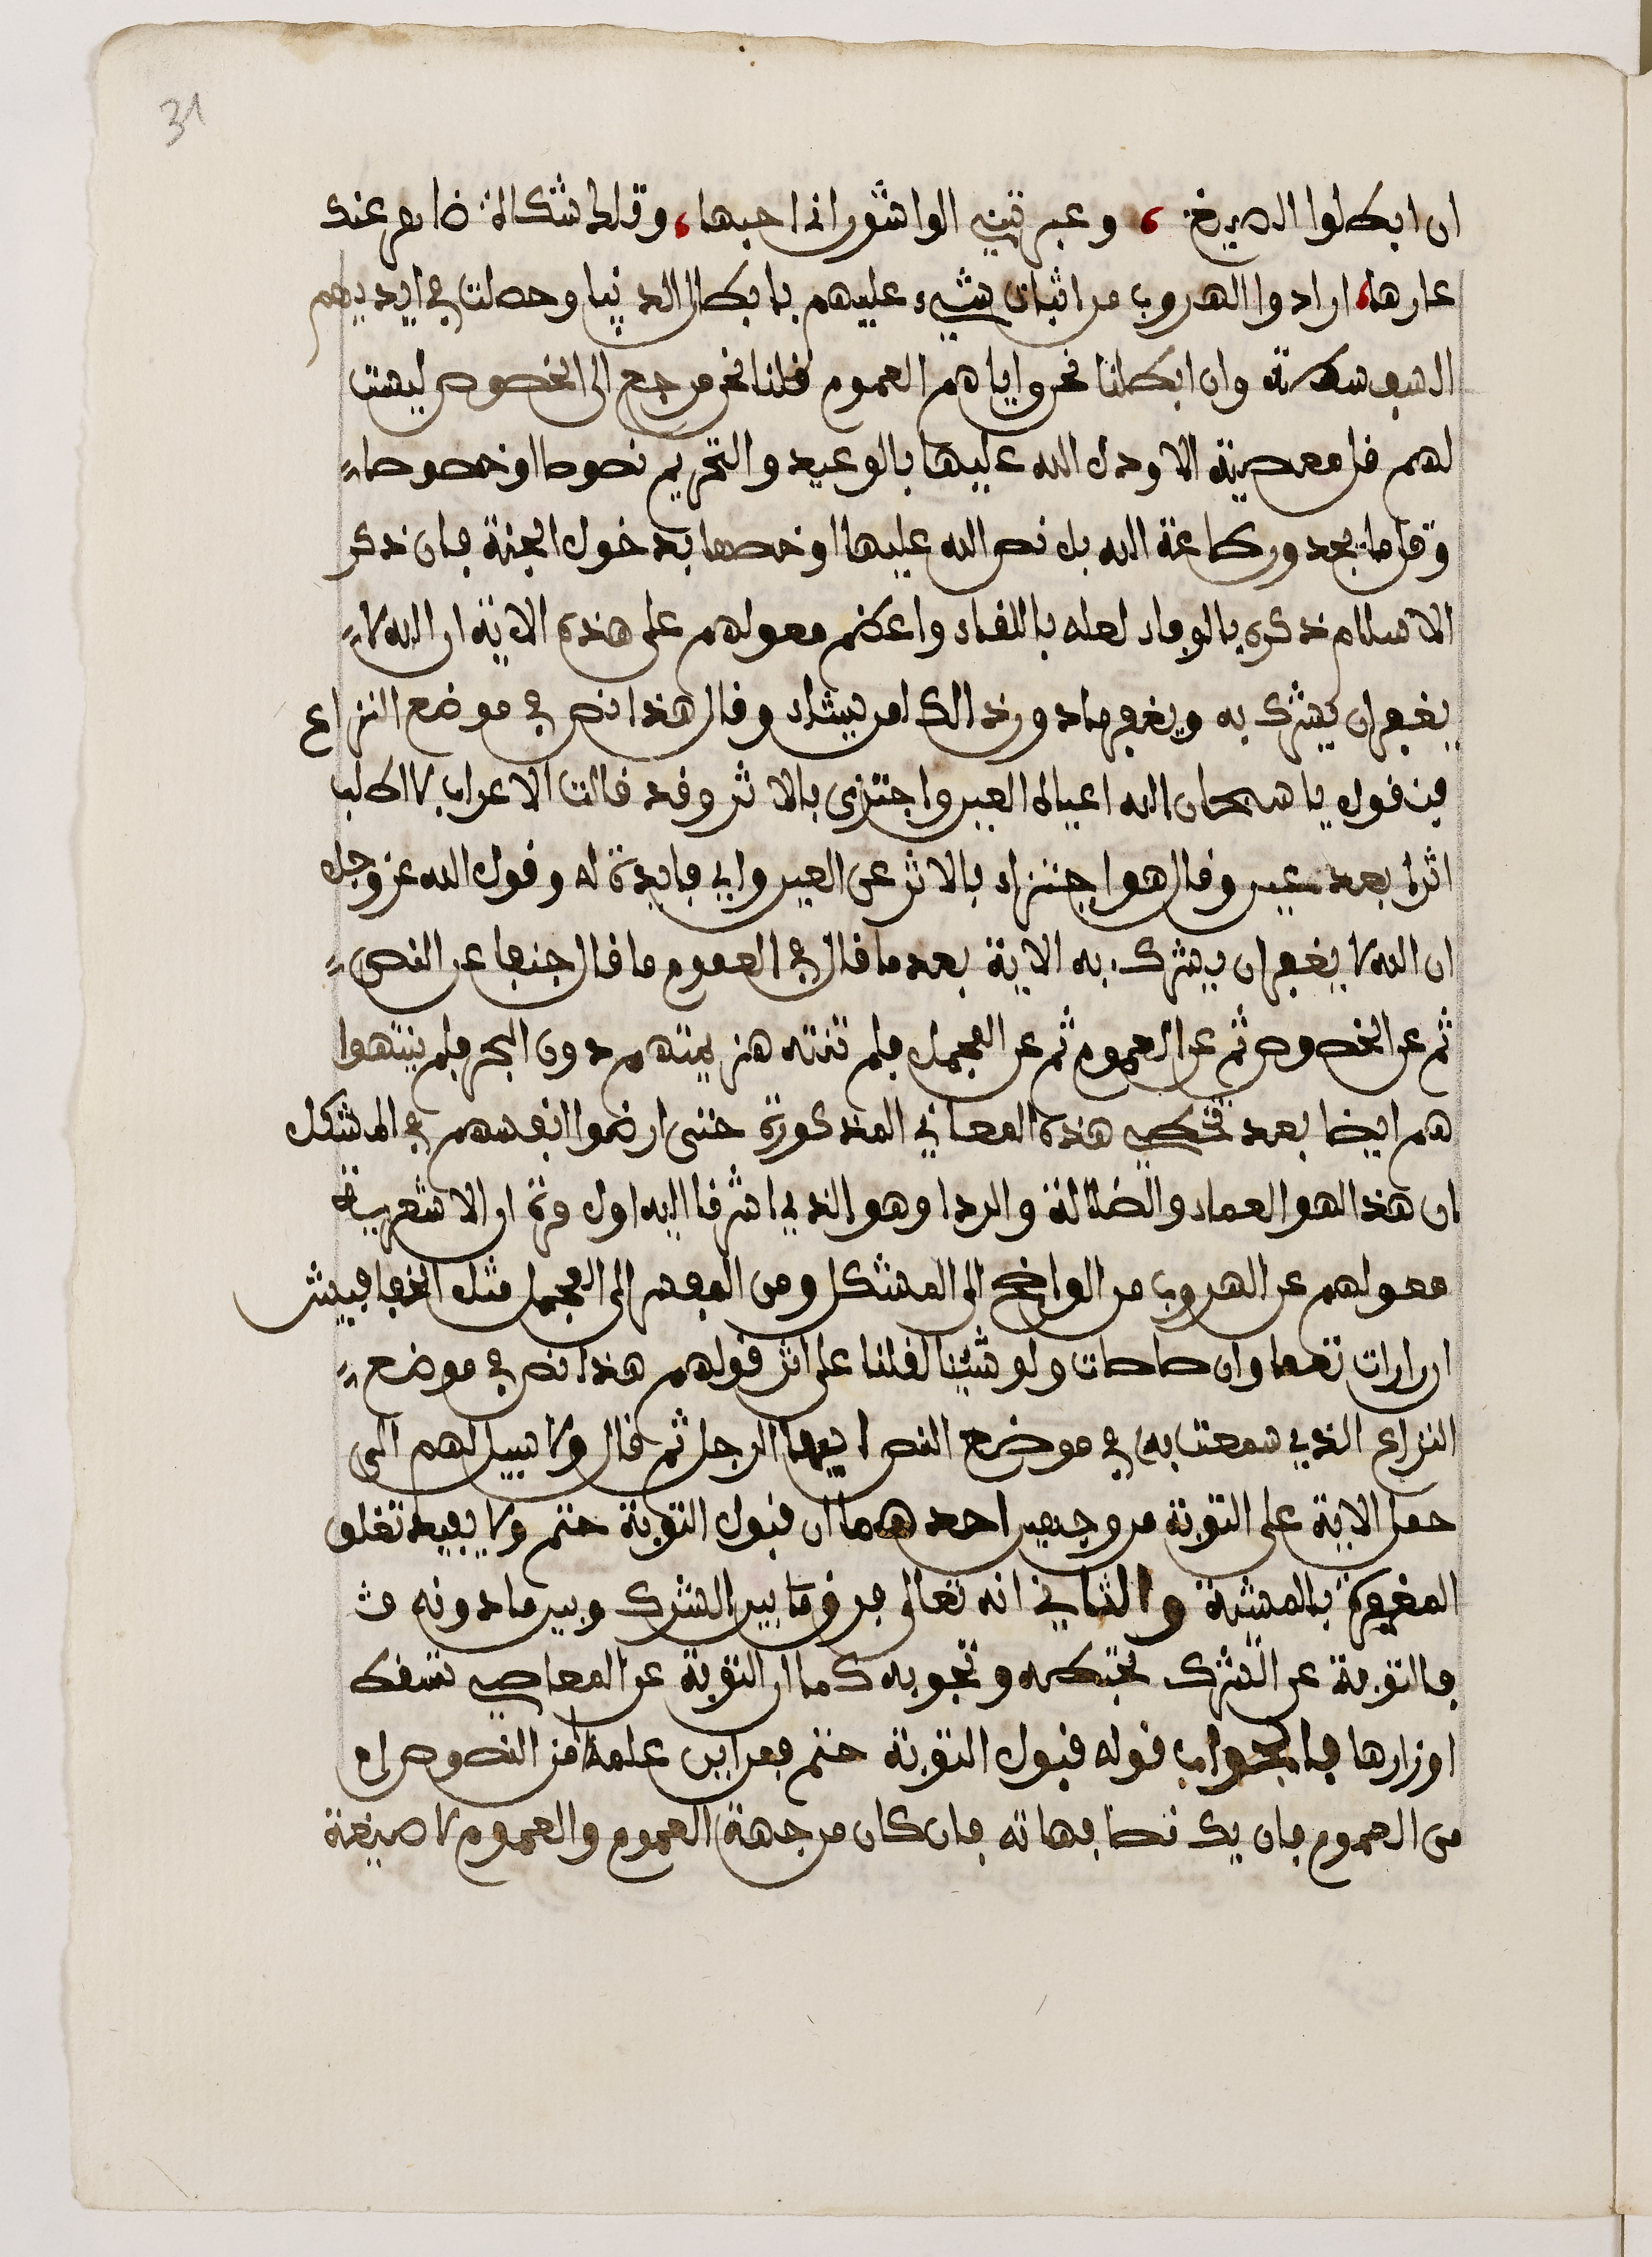 31
ان ابطلوا الصيغ، وعيرتني الواشون اني احبها، وتلك شكاة ظاهر عنك
عارها، ارادوا الهروب من اثبات شيء عليهم بابطال الدنيا وحصلت في ايديهم
السفسطة وان ابطلنا نحن واياهم العموم قلنا نحن مرجع الى الخصوص ليست
لهم قل معصية الا ودل الله عليها بالوعيد والتحريم نصوصا او خصوصا
وقل ما يجدون طاعة الله بل نص الله عليها او خصها بدخول الجنة فان ذكر
الاسلام ذكره بالوفاء لعله باللفاء واعظم معولهم على هذه الاية ان الله لا
يغفر ان يشرك به ويغفر ما دون ذلك لمن يشاء وقال هذا نص في موضع النزاع
فنقول يا سبحان الله اعياك العير واجتزى بالاثر وقد قالت الاعراب لا اطلب
اثرا بعد عين وقال هو اجتزاء بالاثر عن العين واي فايدة له وقول الله عز وجل
ان الله لا يغفر ان يشرك به الاية بعد ما قال في العموم ما قال جنفا عن النص
ثم عن الخصوص ثم عن العموم ثم عن المجمل فلم تنته هزيمتهم دون البحر فلم ينتهوا
هم ايضا بعد تخطي هذه المعاني المذكورة حتى ارضموا انفسهم في المشكل
ان هذا لهو العماء والضلالة والردا وهو الذي اشرفنا اليه اول مرة ان الاشعرية
معولهم عن الهروب من الواضح الى المشكل ومن المفسر الى المجمل مثل الخفافيش
ان رات تعما وان صاحات ولو شئنا لقلنا على اثر قولهم هذا نص في موضع
النزاع الذي سمعت به في موضع النص ايها الرجل ثم قال ولا سبيل لهم الى
حمل الاية على التوبة من وجهين احدهما ان قبول التوبة حتم ولا يفيد تعلق
المغفرة بالمشية والثاني انه تعالى فرق ما بين الشرك وبين ما دونه
فالتوبة عن الشرك تحبطه وتجوبه كما ان التوبة عن المعاصي تسقط
اوزارها فالجواب قوله قبول التوبة حتم فمن اين علمه امن النصوص ام
من العموم فان يك نصا فهاته فان كان من جهة العموم والعموم لا صيغة